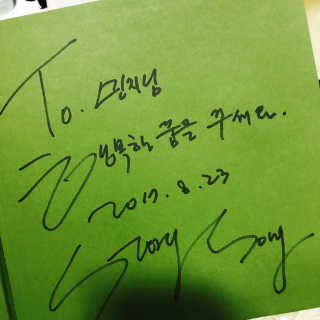 To. 민지님
행복한 꿈을 꾸세요.
2017. 8. 23
Story Song